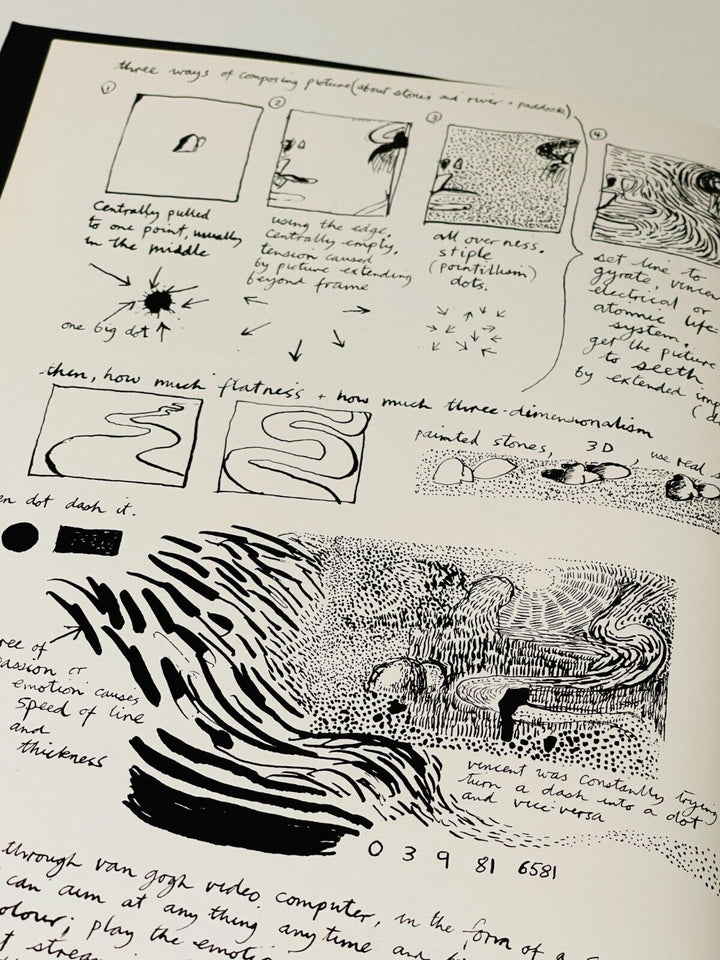 three ways of composing picture (about stones and river + paddock)
①
②
③
④
Centrally pulled
to one point, usually
in the middle
one big dot
using the edge,
Centrally empty,
tension caused
by picture extending
beyond frame
all over ness.
stiple
(pointillism)
dots.
set line to
gyrate, vincen
electrical or
atomic life
system.
get the picture
to seeth
by extended imp
then, how much flatness + how much three-dimensionalism
painted stones, 3D, use real s
en dot dash it.
ree of
passion or
emotion causes
speed of line
and
thickness
vincent was constantly trying
turn a dash into a dot
and vice-versa
0 3 9 81 6581
through van gogh video computer, in the form of a
can aim at any thing any time and
olour; play the emoti
t strea